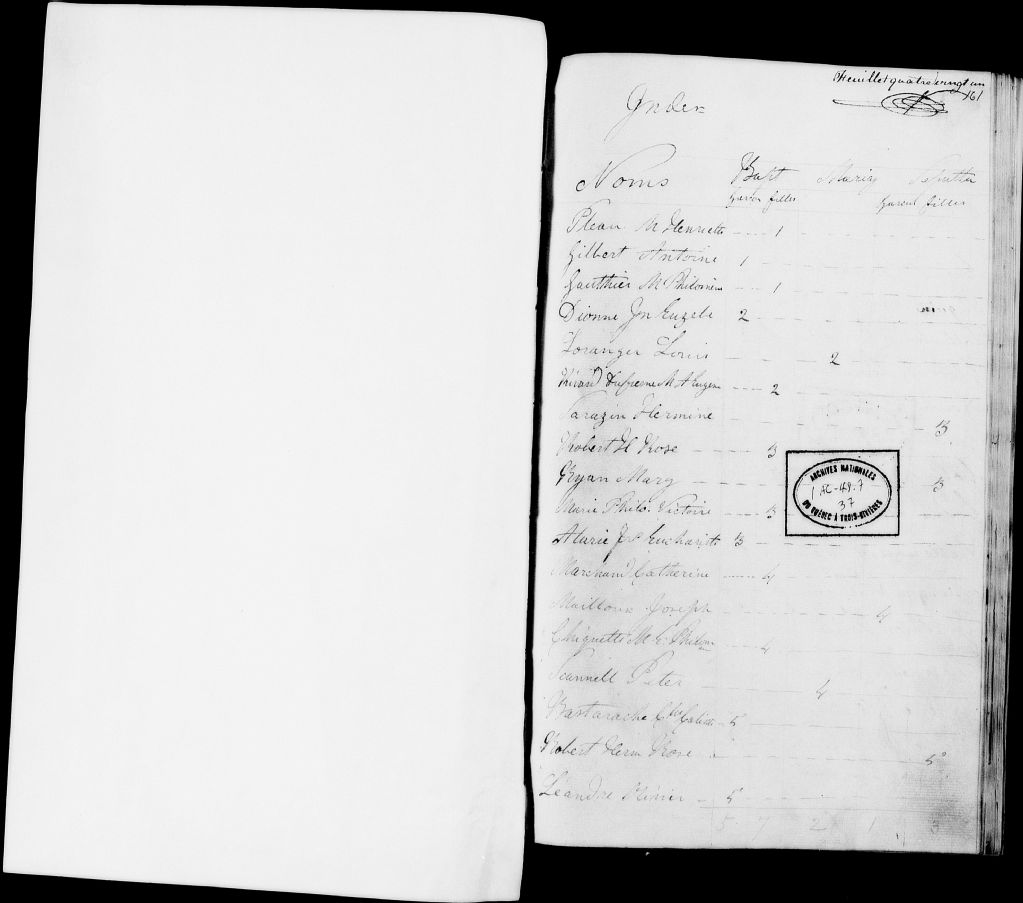 feuillet quatre vingt un
161
Index
Noms Bapt Mariag Sépultu
Garcon filles Garcon filles
Plean M Henriette 1
Gilbert Antoine 1
Gauthier M Philomène 1
Dionne Jn Eusebe 2
Loranger Louis 2
Dufresne M A Eugen 2
Sarazin Hermine 3
Robert H Rose 3
Ryan Mary 3
Marie Philo. Victoire 3
Alarie Jos Eucharist 3
Marchand Catherine 4
Mailloux Joseph 4
Chiquette M E Philom 4
Scannell Peter 4
Bastarache Calixte 5
Robert Herm Rose 5
Léandre 5
5 7 2 1 3
ARCHIVES NATIONALES
1 AC-49.7
37
DU QUÉBEC À TROIS-RIVIÈRES